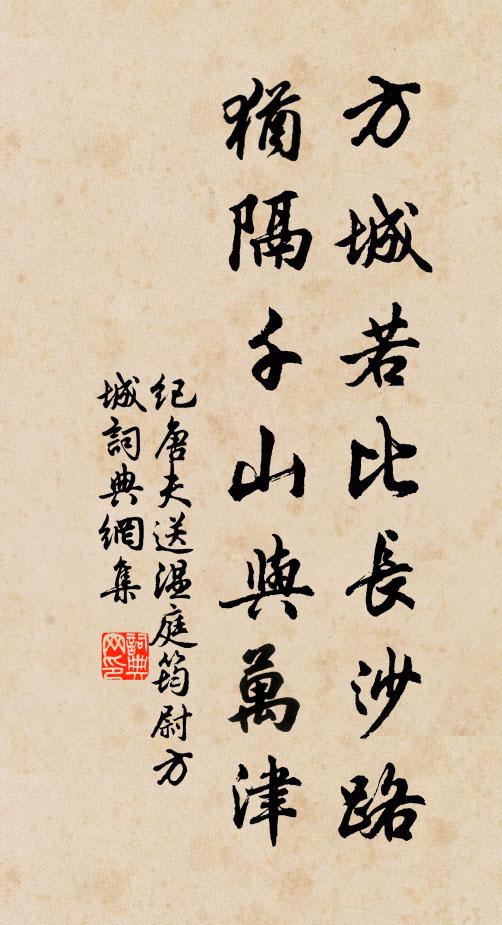 方城若比長沙路
猶隔千山與萬津
紀唐夫送溫庭筠尉方
城詞典網集
詞典網印